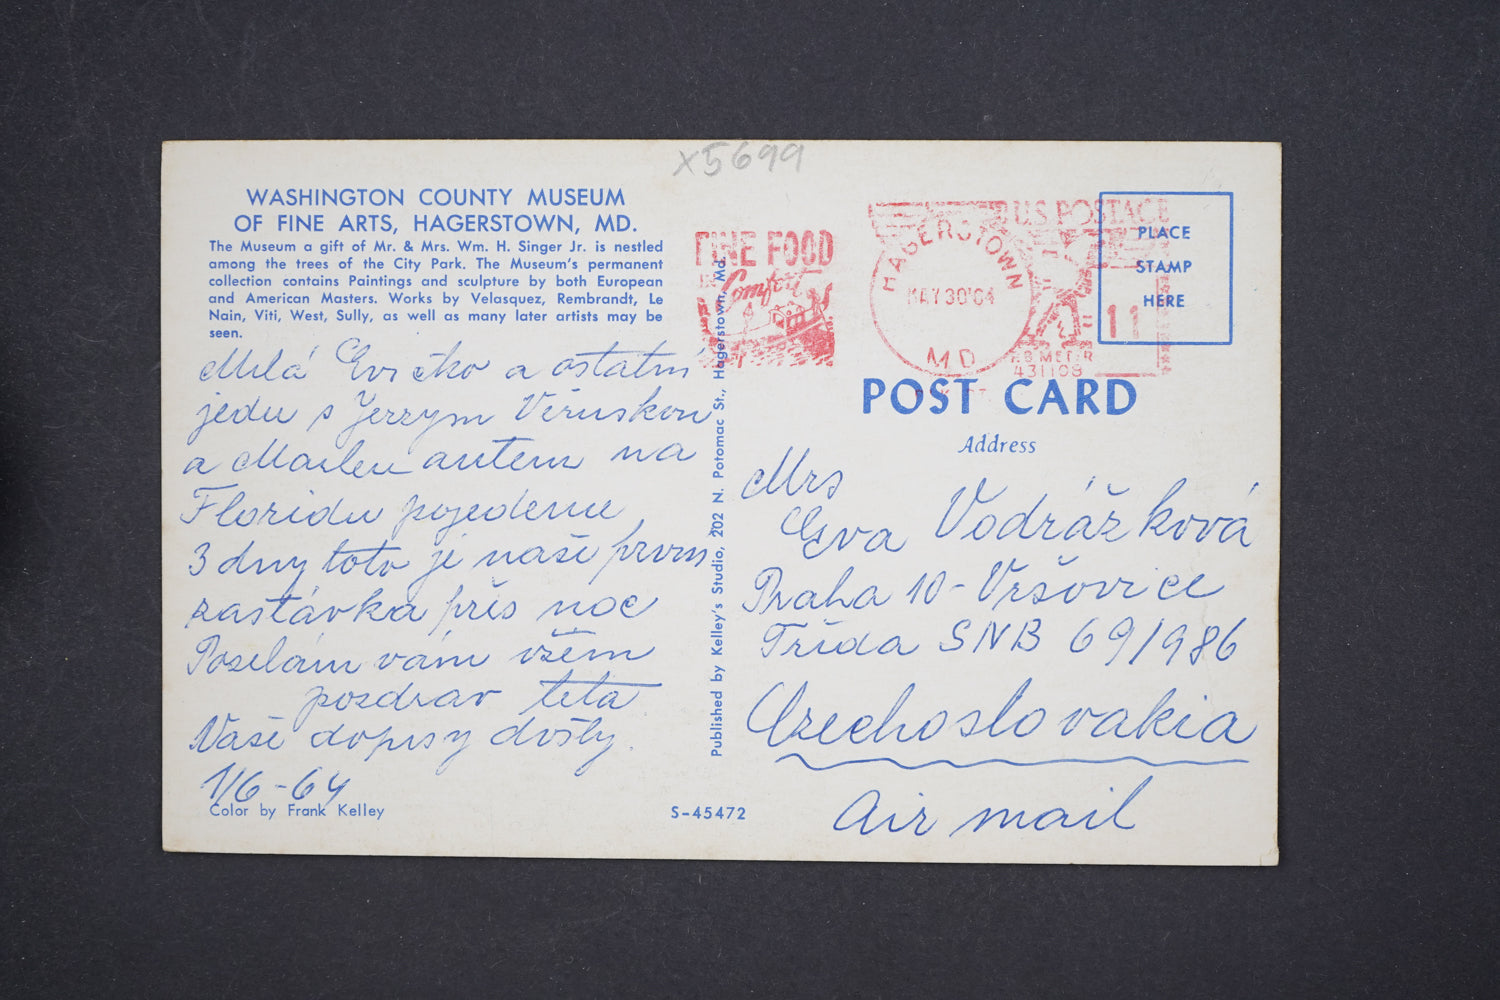 x5699
WASHINGTON COUNTY MUSEUM
OF FINE ARTS, HAGERSTOWN, MD.
The Museum a gift of Mr. & Mrs. Wm. H. Singer Jr. is nestled
among the trees of the City Park. The Museum's permanent
collection contains Paintings and sculpture by both European
and American Masters. Works by Velasquez, Rembrandt, Le
Nain, Viti, West, Sully, as well as many later artists may be
seen.
Milá Evičko a ostatní
jedu s Jerrym Věruskou
a autem na
Floridu pojedeme
3 dny toto je naše prvni
zastávka přes noc
Posílám vám všem
pozdrav teta
Vaše dopisy došly.
1/6-64
Color by Frank Kelley
S-45472
Published by Kelley's Studio, 202 N. Potomac St., Hagerstown, Md.
FINE FOOD
Comfort
HAGERSTOWN
MAY 30'64
MD
U.S. POSTAGE
11
P.B. METER
431108
PLACE
STAMP
HERE
POST CARD
Address
Mrs
Eva Vodrážková
Praha 10-Vršovice
Třída SNB 69/986
Czechoslovakia
Air mail